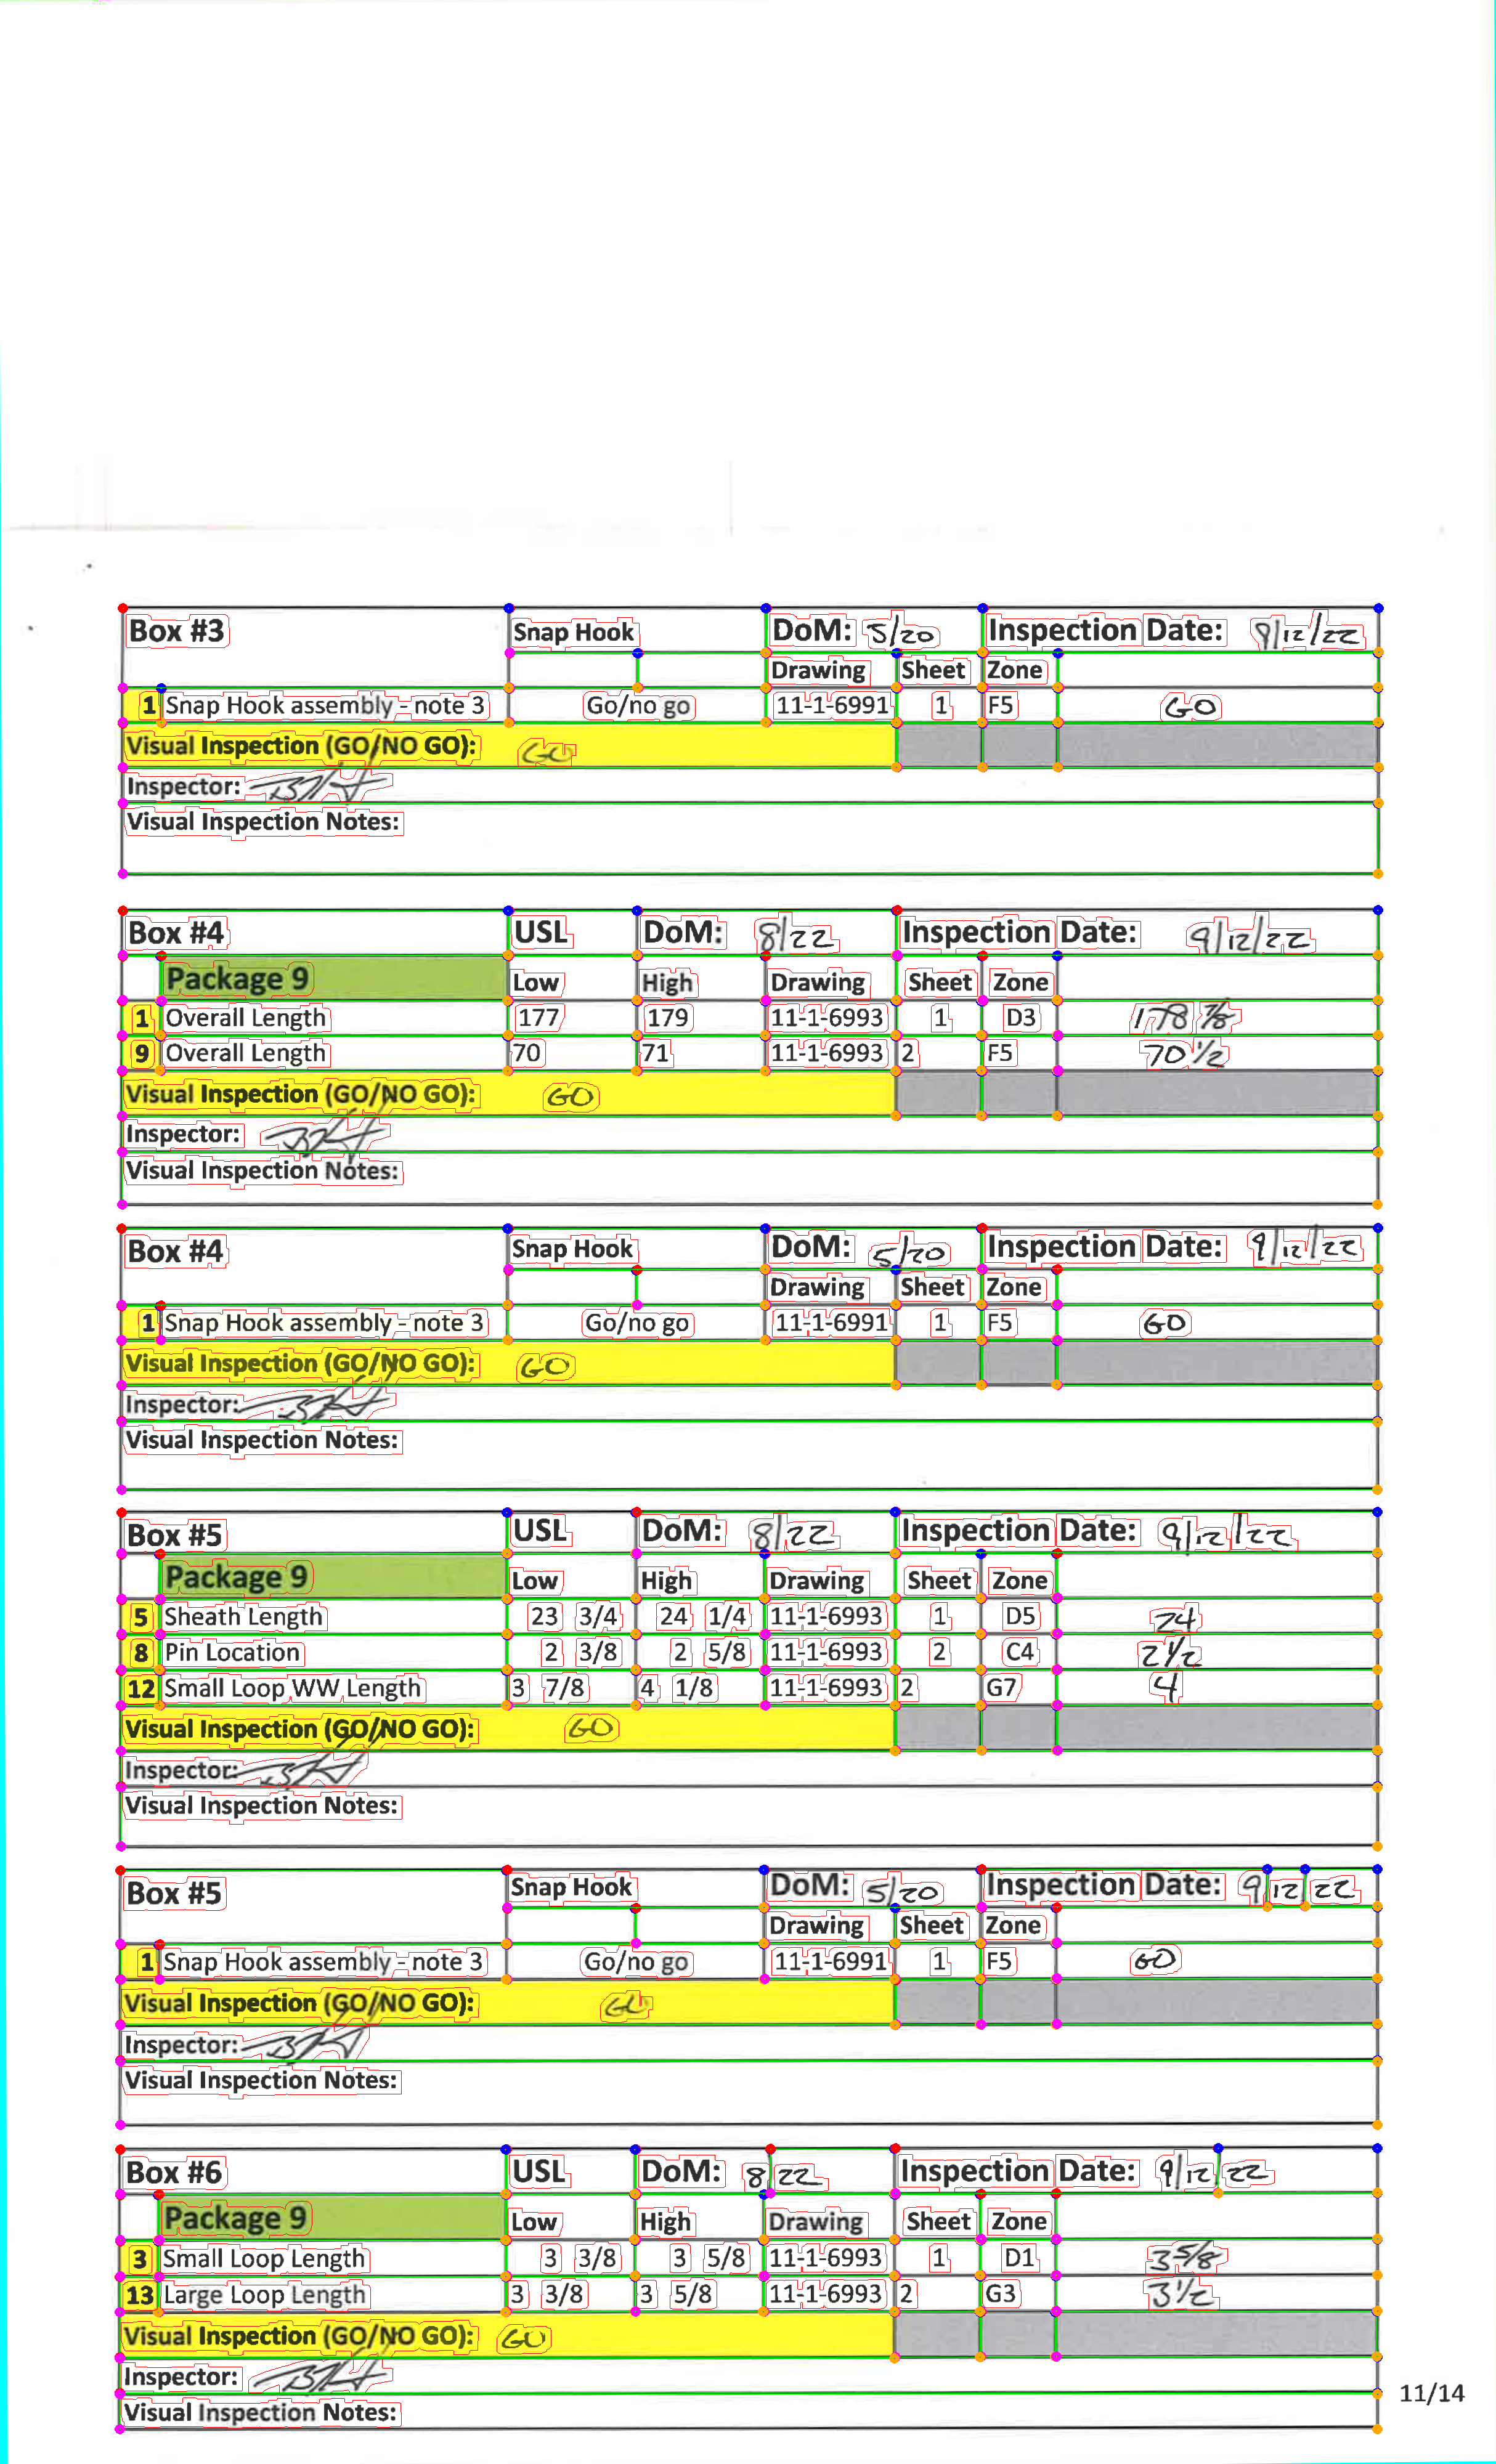 Box #3 Snap Hook DoM: 5/20 Inspection Date: 9/12/22
Drawing Sheet Zone
1 Snap Hook assembly - note 3 Go/no go 11-1-6991 1 F5 GO
Visual Inspection (GO/NO GO): GO
Inspector:
Visual Inspection Notes:
Box #4 USL DoM: 8/22 Inspection Date: 9/12/22
Package 9 Low High Drawing Sheet Zone
1 Overall Length 177 179 11-1-6993 1 D3 178 7/8
9 Overall Length 70 71 11-1-6993 2 F5 70 1/2
Visual Inspection (GO/NO GO): GO
Inspector:
Visual Inspection Notes:
Box #4 Snap Hook DoM: 5/20 Inspection Date: 9/12/22
Drawing Sheet Zone
1 Snap Hook assembly - note 3 Go/no go 11-1-6991 1 F5 GO
Visual Inspection (GO/NO GO): GO
Inspector:
Visual Inspection Notes:
Box #5 USL DoM: 8/22 Inspection Date: 9/12/22
Package 9 Low High Drawing Sheet Zone
5 Sheath Length 23 3/4 24 1/4 11-1-6993 1 D5 24
8 Pin Location 2 3/8 2 5/8 11-1-6993 2 C4 2 1/2
12 Small Loop WW Length 3 7/8 4 1/8 11-1-6993 2 G7 4
Visual Inspection (GO/NO GO): GO
Inspector:
Visual Inspection Notes:
Box #5 Snap Hook DoM: 5/20 Inspection Date: 9/12/22
Drawing Sheet Zone
1 Snap Hook assembly - note 3 Go/no go 11-1-6991 1 F5 GO
Visual Inspection (GO/NO GO): GO
Inspector:
Visual Inspection Notes:
Box #6 USL DoM: 8/22 Inspection Date: 9/12/22
Package 9 Low High Drawing Sheet Zone
3 Small Loop Length 3 3/8 3 5/8 11-1-6993 1 D1 3 5/8
13 Large Loop Length 3 3/8 3 5/8 11-1-6993 2 G3 3 1/2
Visual Inspection (GO/NO GO): GO
Inspector:
11/14
Visual Inspection Notes: